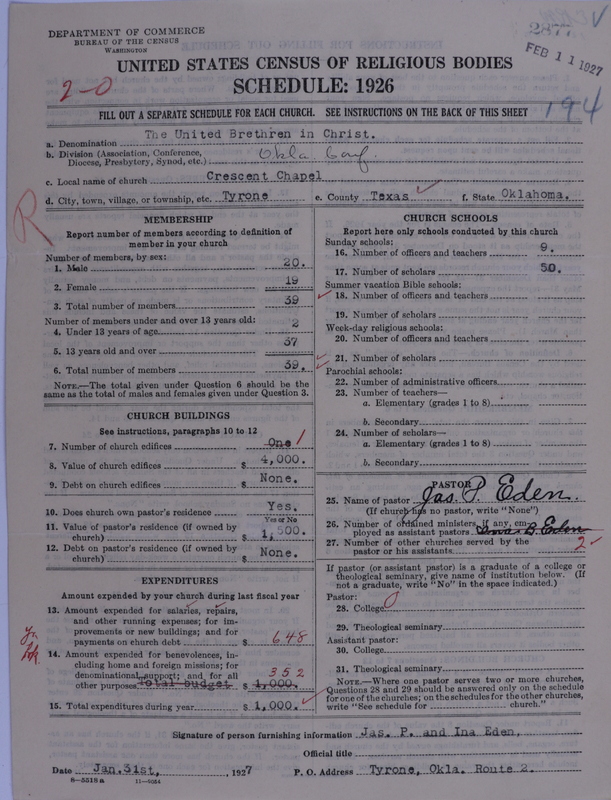 DEPARTMENT OF COMMERCE
BUREAU OF THE CENSUS
WASHINGTON
2877
FEB 11 1927
UNITED STATES CENSUS OF RELIGIOUS BODIES
2-0
SCHEDULE: 1926
FILL OUT A SEPARATE SCHEDULE FOR EACH CHURCH. SEE INSTRUCTIONS ON THE BACK OF THIS SHEET
194
a. Denomination The United Brethren in Christ.
b. Division (Association, Conference,
Diocese, Presbytery, Synod, etc.) Okla. Conf.
c. Local name of church Crescent Chapel
d. City, town, village, or township, etc. Tyrone e. County Texas f. State Oklahoma.
R
MEMBERSHIP
Report number of members according to definition of
member in your church
Number of members, by sex:
1. Male 20.
2. Female 19
3. Total number of members 39
Number of members under and over 13 years old:
4. Under 13 years of age 2
5. 13 years old and over 37
6. Total number of members 39.
NOTE.—The total given under Question 6 should be the
same as the total of males and females given under Question 3.
CHURCH BUILDINGS
See instructions, paragraphs 10 to 12
7. Number of church edifices One 1
8. Value of church edifices $ 4,000.
9. Debt on church edifices $ None.
10. Does church own pastor's residence? Yes.
Yes or No
11. Value of pastor's residence (if owned by
church) $ 1,500.
12. Debt on pastor's residence (if owned by
church) $ None.
EXPENDITURES
Amount expended by your church during last fiscal year
13. Amount expended for salaries, repairs,
and other running expenses; for im-
provements or new buildings; and for
payments on church debt $ 648
14. Amount expended for benevolences, in-
cluding home and foreign missions; for
denominational support; and for all 352
other purposes Total budget $ 1,000.
15. Total expenditures during year $ 1,000.
CHURCH SCHOOLS
Report here only schools conducted by this church
Sunday schools:
16. Number of officers and teachers 9.
17. Number of scholars 50.
Summer vacation Bible schools:
18. Number of officers and teachers
19. Number of scholars
Week-day religious schools:
20. Number of officers and teachers
21. Number of scholars
Parochial schools:
22. Number of administrative officers
23. Number of teachers—
a. Elementary (grades 1 to 8)
b. Secondary
24. Number of scholars—
a. Elementary (grades 1 to 8)
b. Secondary
PASTOR
25. Name of pastor Jas. P. Eden.
(If church has no pastor, write "None")
26. Number of ordained ministers, if any, em-
ployed as assistant pastors Eden
27. Number of other churches served by the
pastor or his assistants 2
If pastor (or assistant pastor) is a graduate of a college or
theological seminary, give name of institution below. (If
not a graduate, write "No" in the space indicated.)
Pastor:
28. College 0
29. Theological seminary
Assistant pastor:
30. College
31. Theological seminary
NOTE.—Where one pastor serves two or more churches,
Questions 28 and 29 should be answered only on the schedule
for one of the churches; on the schedules for the other churches,
write "See schedule for church."
Signature of person furnishing information Jas. P. and Ina Eden,
Official title
Date Jan. 31st, 1927 P. O. Address Tyrone, Okla. Route 2.
8-5518 a 11-9054